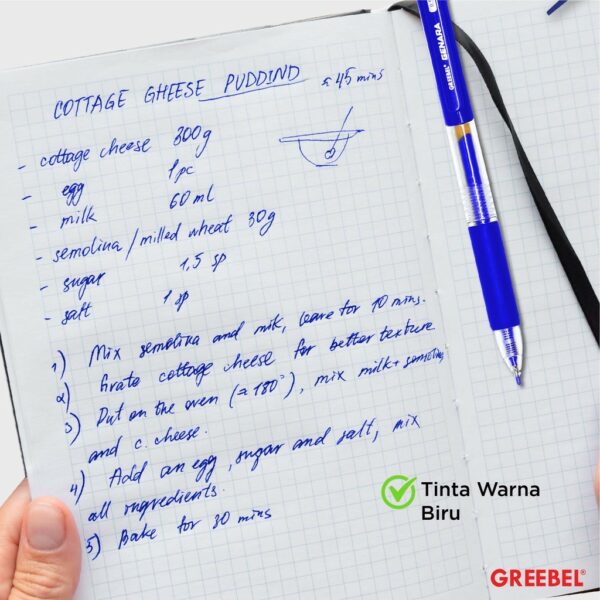 COTTAGE GHEESE PUDDIND ≈ 45 mins
- cottage cheese 300g
- egg 1 pc
- milk 60 ml
- semolina / milled wheat 30g
- sugar 1,5 sp
- salt 1 sp
1) Mix semolina and milk, leave for 10 mins.
2) Grate cottage cheese for better texture
3) Put on the oven (≈ 180°), mix milk + semolina
and c. cheese.
4) Add an egg, sugar and salt, mix
all ingredients.
5) Bake for 30 mins
GREEBEL® GENARA
Tinta Warna
Biru
GREEBEL®